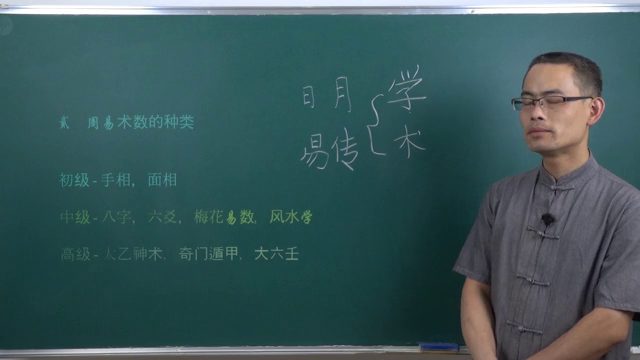 贰 周易术数的种类
初级-手相，面相
中级-八字，六爻，梅花易数，风水学
高级-太乙神术，奇门遁甲，大六壬
日月 { 学
易传 术